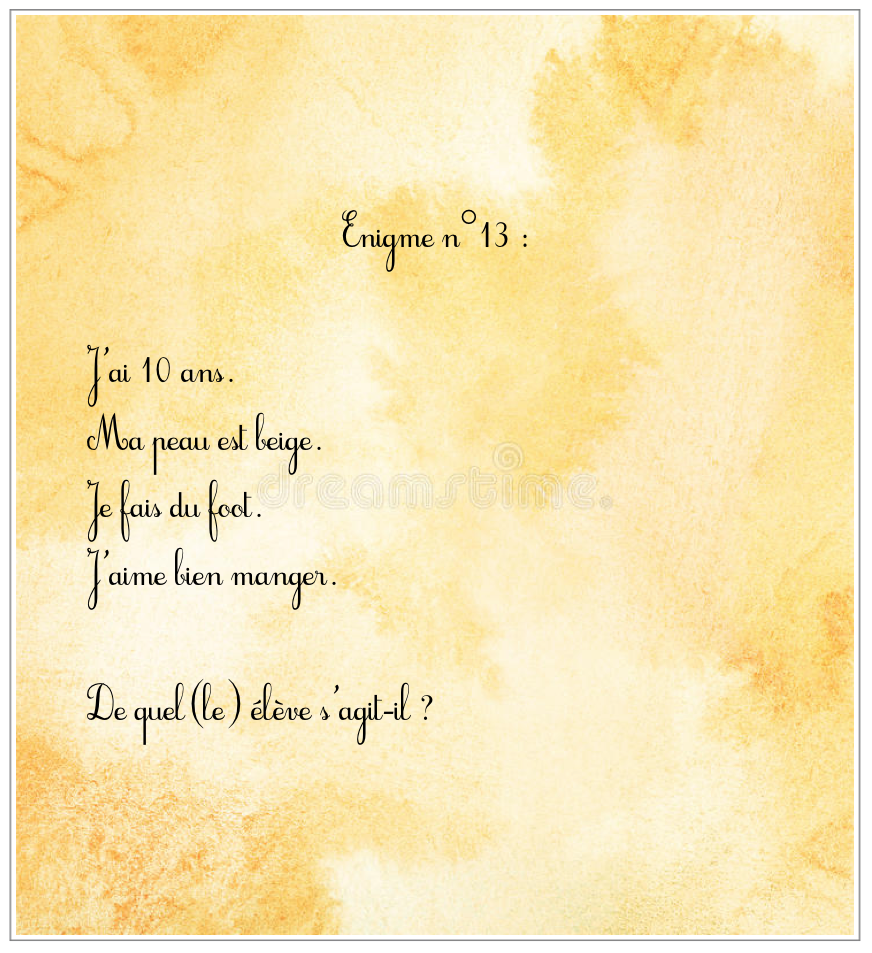 Enigme n°13 :
J'ai 10 ans.
Ma peau est beige.
Je fais du foot.
J'aime bien manger.
De quel(le) élève s'agit-il ?
dreamstime.